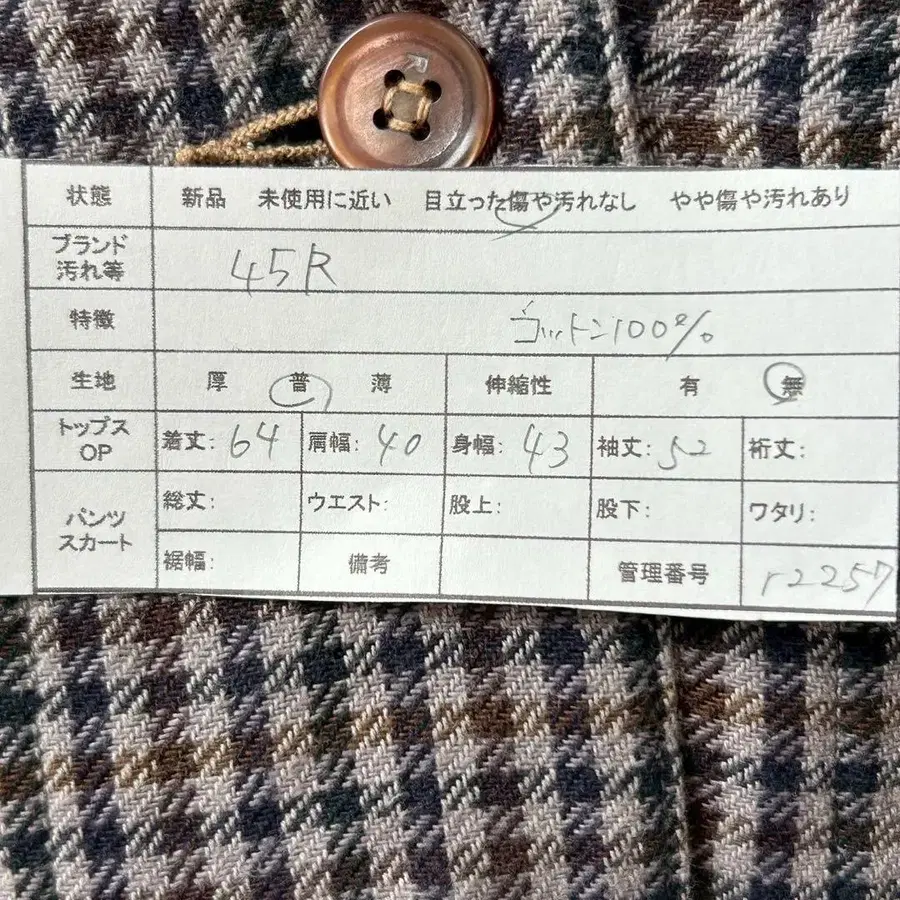 R
状態 新品 未使用に近い 目立った傷や汚れなし やや傷や汚れあり
ブランド
汚れ等 45R
特徴 コットン100%
生地 厚 普 薄 伸縮性 有 無
トップス
OP 着丈: 64 肩幅: 40 身幅: 43 袖丈: 52 裄丈:
パンツ
スカート 総丈: ウエスト: 股上: 股下: ワタリ:
裾幅: 備考 管理番号 r2257